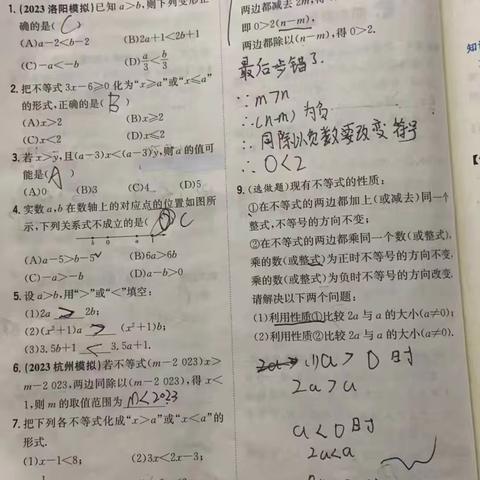 1. (2023 洛阳模拟)已知 a>b,则下列变形正
确的是( C )
(A)a-2<b-2 (B)2a+1<2b+1
(C)-a<-b (D)a/3<b/3
2. 把不等式 3x-6≥0 化为“x≥a”或“x≤a”
的形式,正确的是( B )
(A)x>2 (B)x≥2
(C)x<2 (D)x≤2
3. 若 x>y,且(a-3)x<(a-3)y,则 a 的值可
能是( A )
(A)0 (B)3 (C)4 (D)5
4. 实数 a,b 在数轴上的对应点的位置如图所
示,下列关系式不成立的是( C
(A)a-5>b-5 (B)6a>6b
(C)-a>-b (D)a-b>0
5. 设 a>b,用“>”或“<”填空:
(1)2a > 2b;
(2)(x²+1)a > (x²+1)b;
(3)3.5b+1 < 3.5a+1.
6. (2023 杭州模拟)若不等式(m-2 023)x>
m-2 023,两边同除以(m-2 023),得 x<
1,则 m 的取值范围为 m<2023
7. 把下列各不等式化成“x>a”或“x<a”的
形式.
(1)x-1<8; (2)3x<2x-3;
两边都减去 2m,得
即 0>2(n-m),
两边都除以(n-m),得 0>2.
最后步错了.
∵m>n
∴(n-m) 为负
∴同除以负数要改变符号
∴0<2
9. (选做题)现有不等式的性质:
①在不等式的两边都加上(或减去)同一个
整式,不等号的方向不变;
②在不等式的两边都乘同一个数(或整式),
乘的数(或整式)为正时不等号的方向不变,
乘的数(或整式)为负时不等号的方向改变.
请解决以下两个问题:
(1)利用性质①比较 2a 与 a 的大小(a≠0);
(2)利用性质②比较 2a 与 a 的大小(a≠0).
(1)a>0时
2a>a
a<0时
2a<a